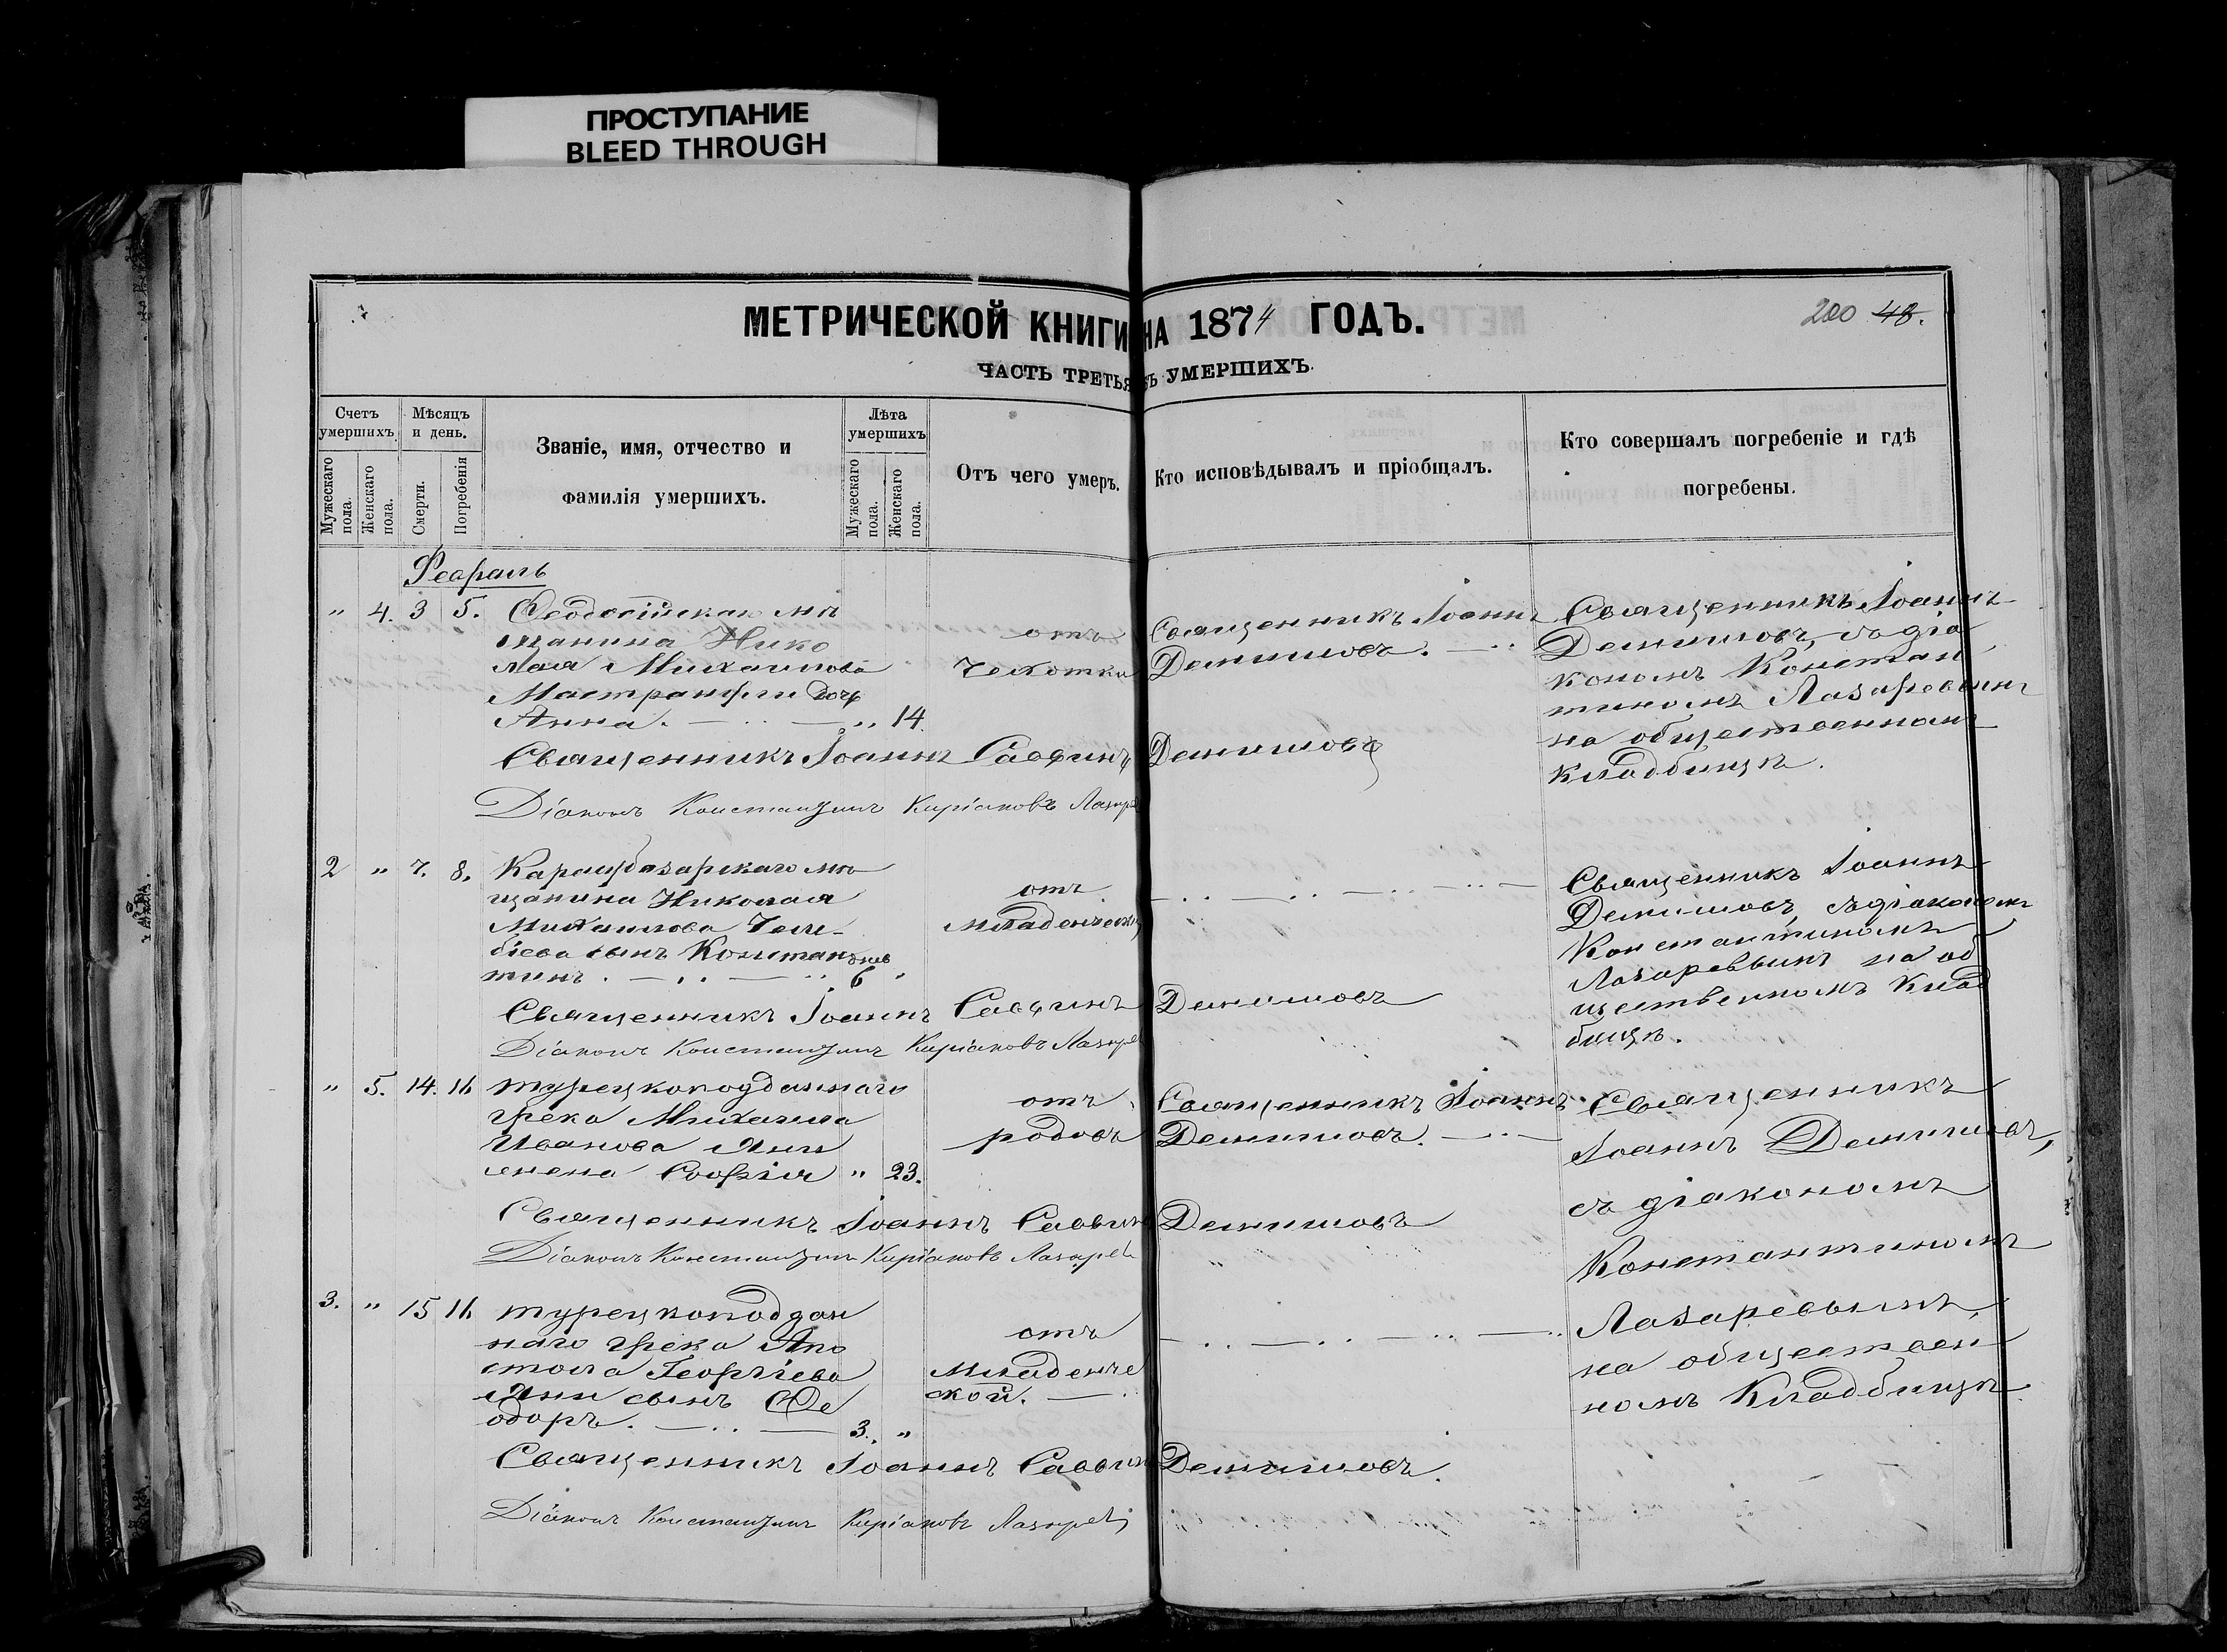 ПРОСТУПАНИЕ
BLEED THROUGH
МЕТРИЧЕСКОЙ КНИГИ НА 1874 ГОДЪ.
200 48.
ЧАСТЬ ТРЕТЬЯ УМЕРШИХЪ.
Счетъ умершихъ.
Мужескаго пола.
Женскаго пола.
Мѣсяцъ и день.
Смерти.
Погребенія
Званіе, имя, отчество и
фамилія умершихъ.
Лѣта умершихъ
Мужескаго пола.
Женскаго пола.
Отъ чего умеръ.
Кто исповѣдывалъ и пріобщалъ.
Кто совершалъ погребеніе и гдѣ
погребены.
Февраль
" 4. 3 5. Ѳеодосійскаго мѣ
щанина Нико
лая Михаилова
дочь
Анна. " 14.
отъ
Чехотки
Священникъ Іоаннъ
Демишовъ.
Священникъ Іоаннъ
Демишовъ, съ діа
кономъ Констан
тиномъ Лазаревымъ
на общественномъ
кладбищѣ.
Священникъ Іоаннъ Саввинъ Демишовъ
Діаконъ Константинъ Киріаковъ Лазарев
2 " 7. 8. Карасубазарскаго мѣ
щанина Николая
Михаилова Челе-
біева сынъ Констан
тинъ. 6 дней "
отъ
младенческой
Священникъ Іоаннъ
Демишовъ, съ діакономъ
Константиномъ
Лазаревымъ на об
щественномъ клад
бищѣ.
Священникъ Іоаннъ Саввинъ Демишовъ
Діаконъ Константинъ Киріаковъ Лазарев
" 5. 14. 16 турецкоподданнаго
грека Михаила
Иванова
жена Софія " 23.
отъ
родовъ
Священникъ Іоаннъ
Демишовъ.
Священникъ
Іоаннъ Демишовъ,
съ діакономъ
Константиномъ
Лазаревымъ,
на обществен
номъ Кладбищѣ.
Священникъ Іоаннъ Саввинъ Демишовъ
Діаконъ Константинъ Киріаковъ Лазарев
3. " 15 16 турецкоподдан
наго грека Апо
стола Георгіева
сынъ Ѳе
одоръ. 3. "
отъ
младенче
ской.
Священникъ Іоаннъ Саввинъ Демишовъ.
Діаконъ Константинъ Киріаковъ Лазарев